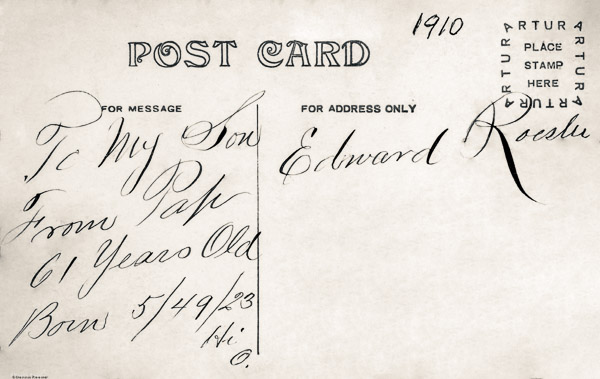 1910
POST CARD
ARTURA ARTURA ARTURA ARTURA
PLACE
STAMP
HERE
FOR MESSAGE
FOR ADDRESS ONLY
To My Son
From Pap
61 Years Old
Born 5/49/23
Hi
O.
Edward Roesle